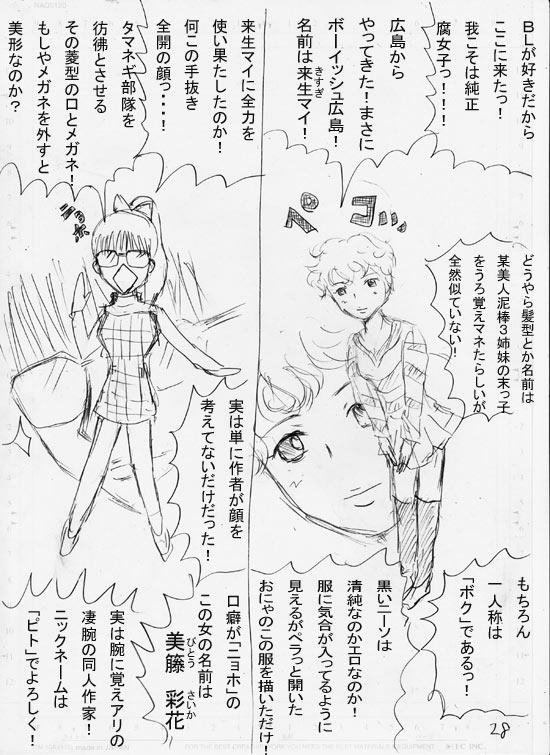 BLが好きだから
ここに来たっ！
我こそは純正
腐女子っ！！！
広島から
やってきた！まさに
ボーイッシュ広島！
名前は来生マイ！
きすぎ
ペコッ
どうやら髪型とか名前は
某美人泥棒3姉妹の末っ子
をうろ覚えマネたらしいが
全然似ていない！
もちろん
一人称は
「ボク」であるっ！
黒いニーソは
清純なのかエロなのか！
服に気合が入ってるように
見えるがペラっと開いた
おにゃのこの服を描いただけ
来生マイに全力を
使い果たしたのか！
何この手抜き
全開の顔っ・・・・！
タマネギ部隊を
彷彿とさせる
その菱型の口とメガネ！
もしやメガネを外すと
美形なのか？
ニョホ
実は単に作者が顔を
考えてないだけだった！
口癖が「ニョホ」の
この女の名前は
美藤　彩花
びとう　さいか
実は腕に覚えアリの
凄腕の同人作家！
ニックネームは
「ピト」でよろしく！
28